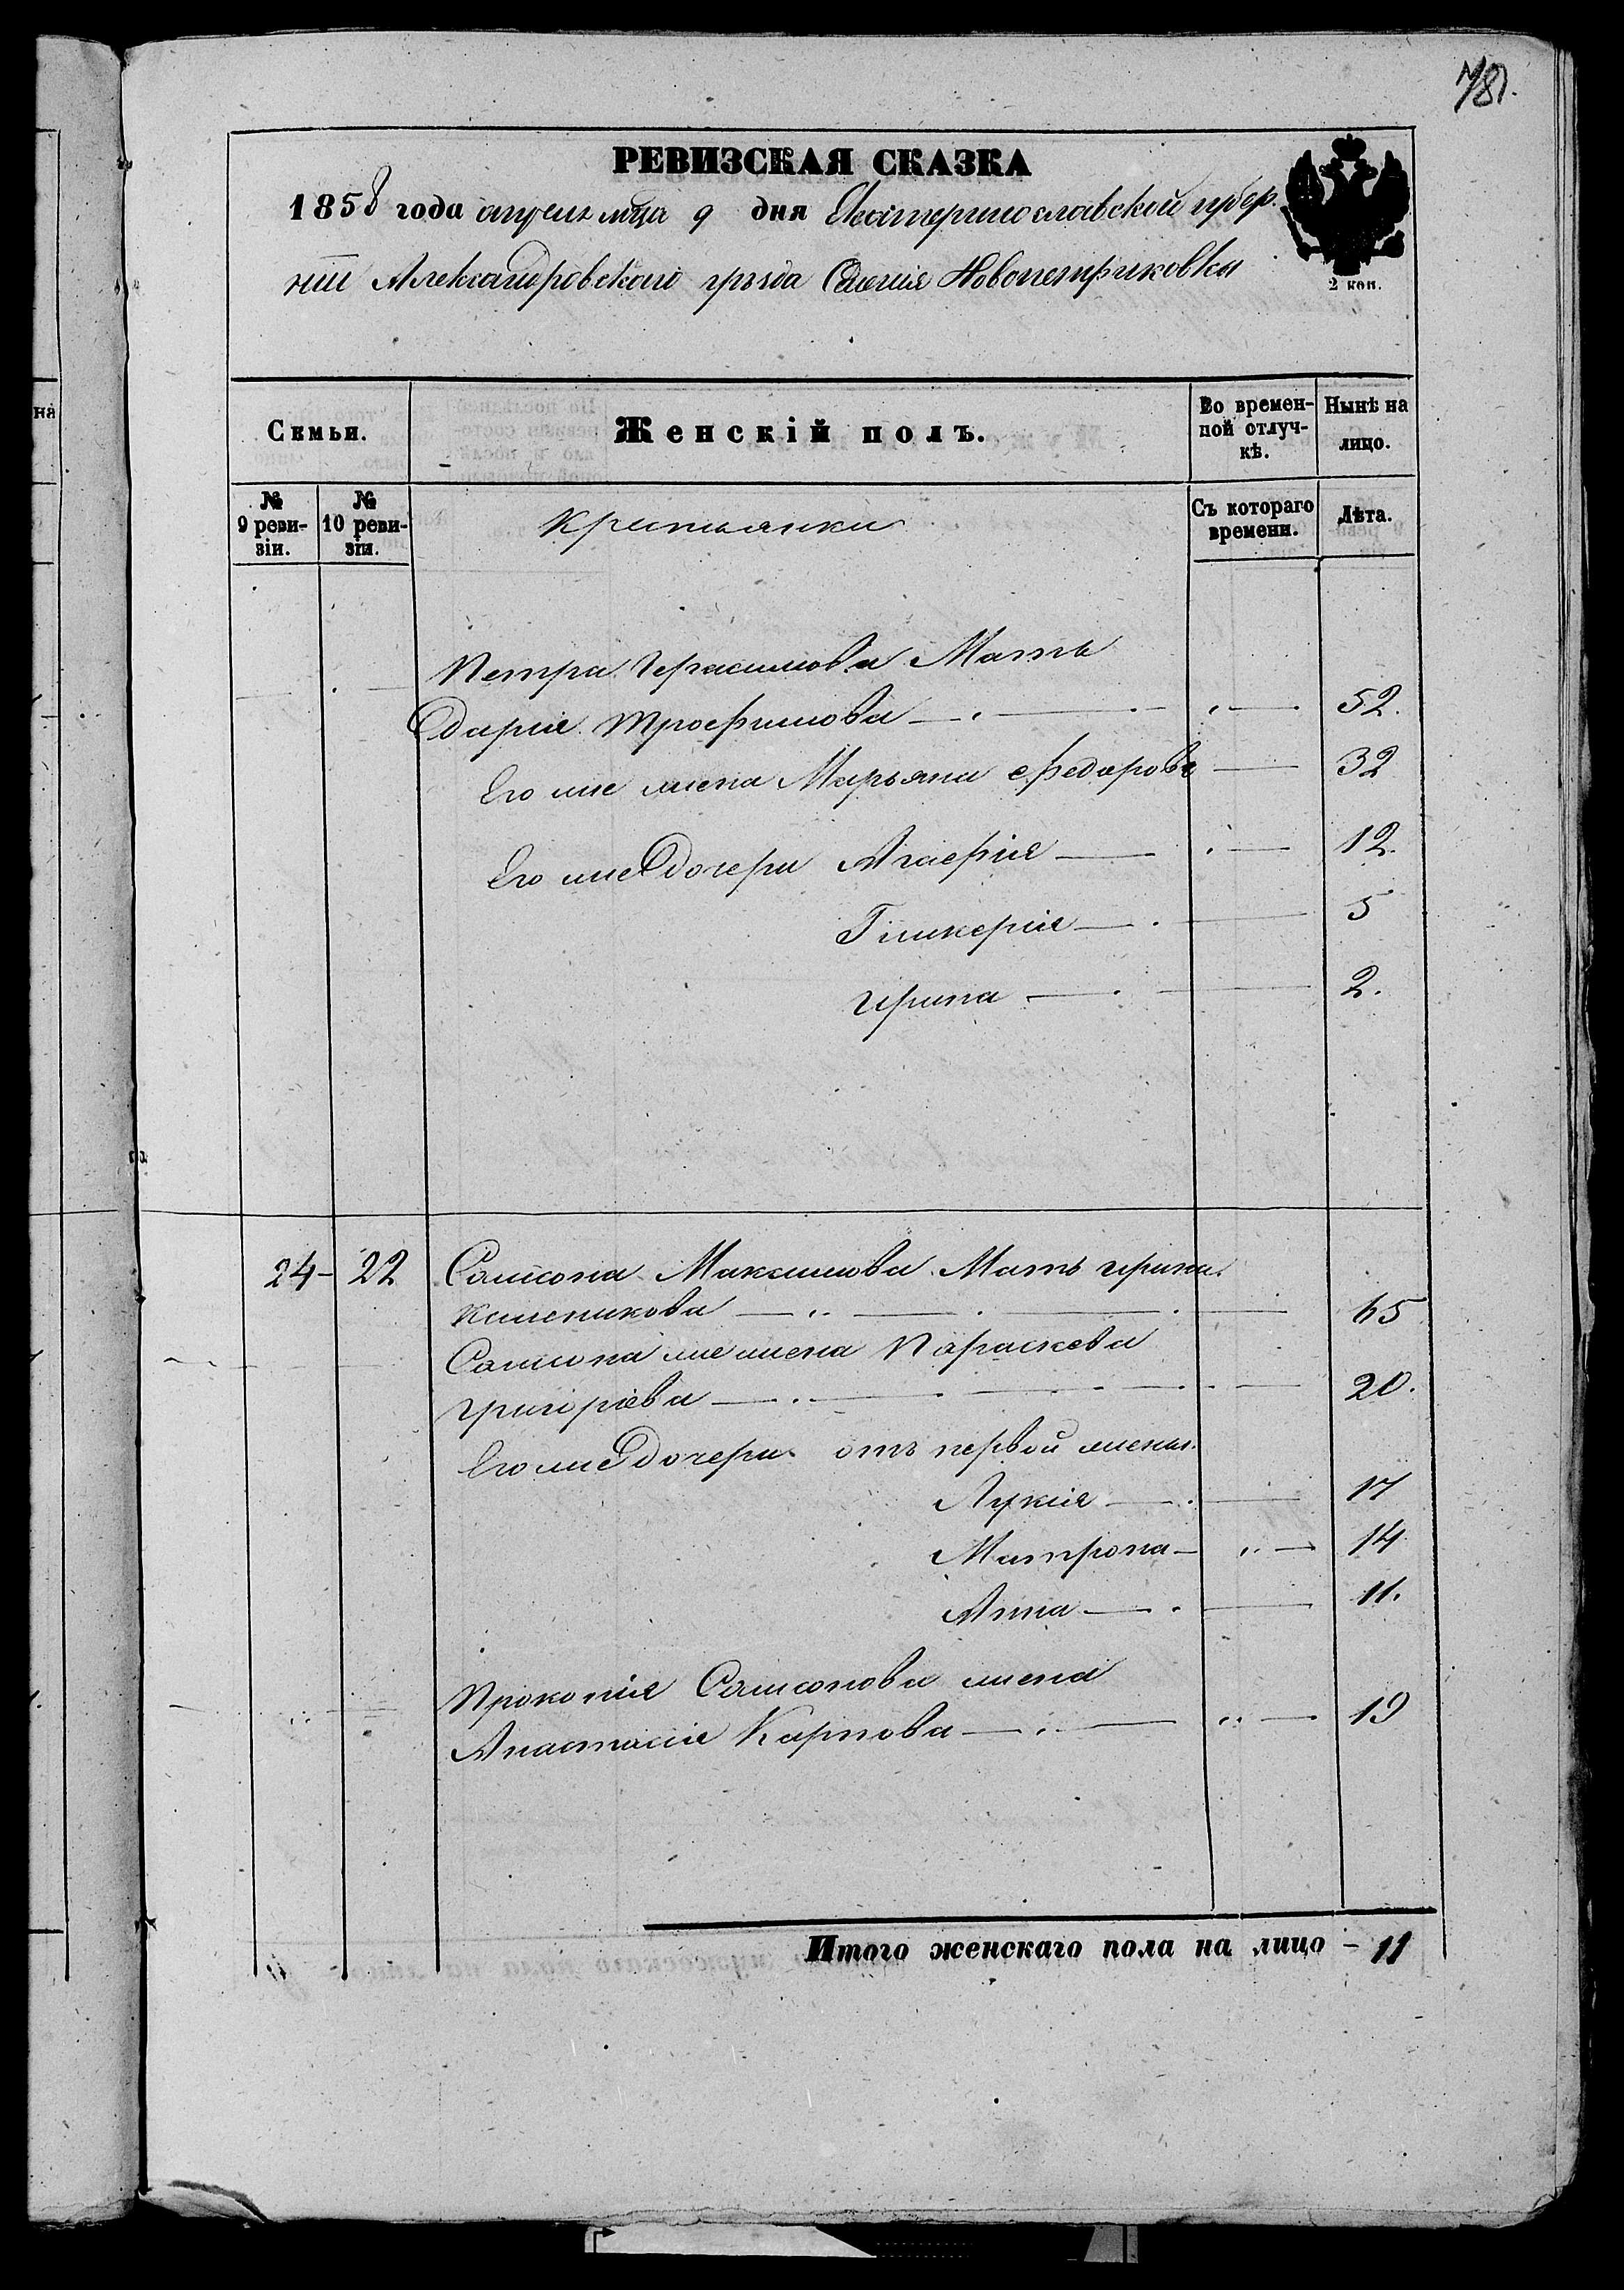 781.
РЕВИЗСКАЯ СКАЗКА
1858 года апреля мца 9 дня Екатеринославской губер.
ніи Александровскаго уезда Селенія Новопетриковки
2 коп.
Семьи.
Женскій полъ.
Во времен-
ной отлуч-
кѣ.
Нынѣ на
лицо.
№
9 реви-
зіи.
№
10 реви-
зіи.
Крестьянки
Съ котораго
времени.
Лѣта.
Петра Герасимова Мать
Дарія Трофимова 52.
Его же жена Марьяна Федорова 32
Его же Дочери Агафія 12.
Гликерія 5
Ирина 2.
24 - 22 Самсона Максимова Мать Ирина
65
Самсона же жена Параскева
Григоріева 20.
Его же Дочери отъ первой жены
Лукія 17
Матрона 14
Анна 11.
Прокопія Самсонова жена
Анастасія Карпова 19
Итого женскаго пола на лицо - 11